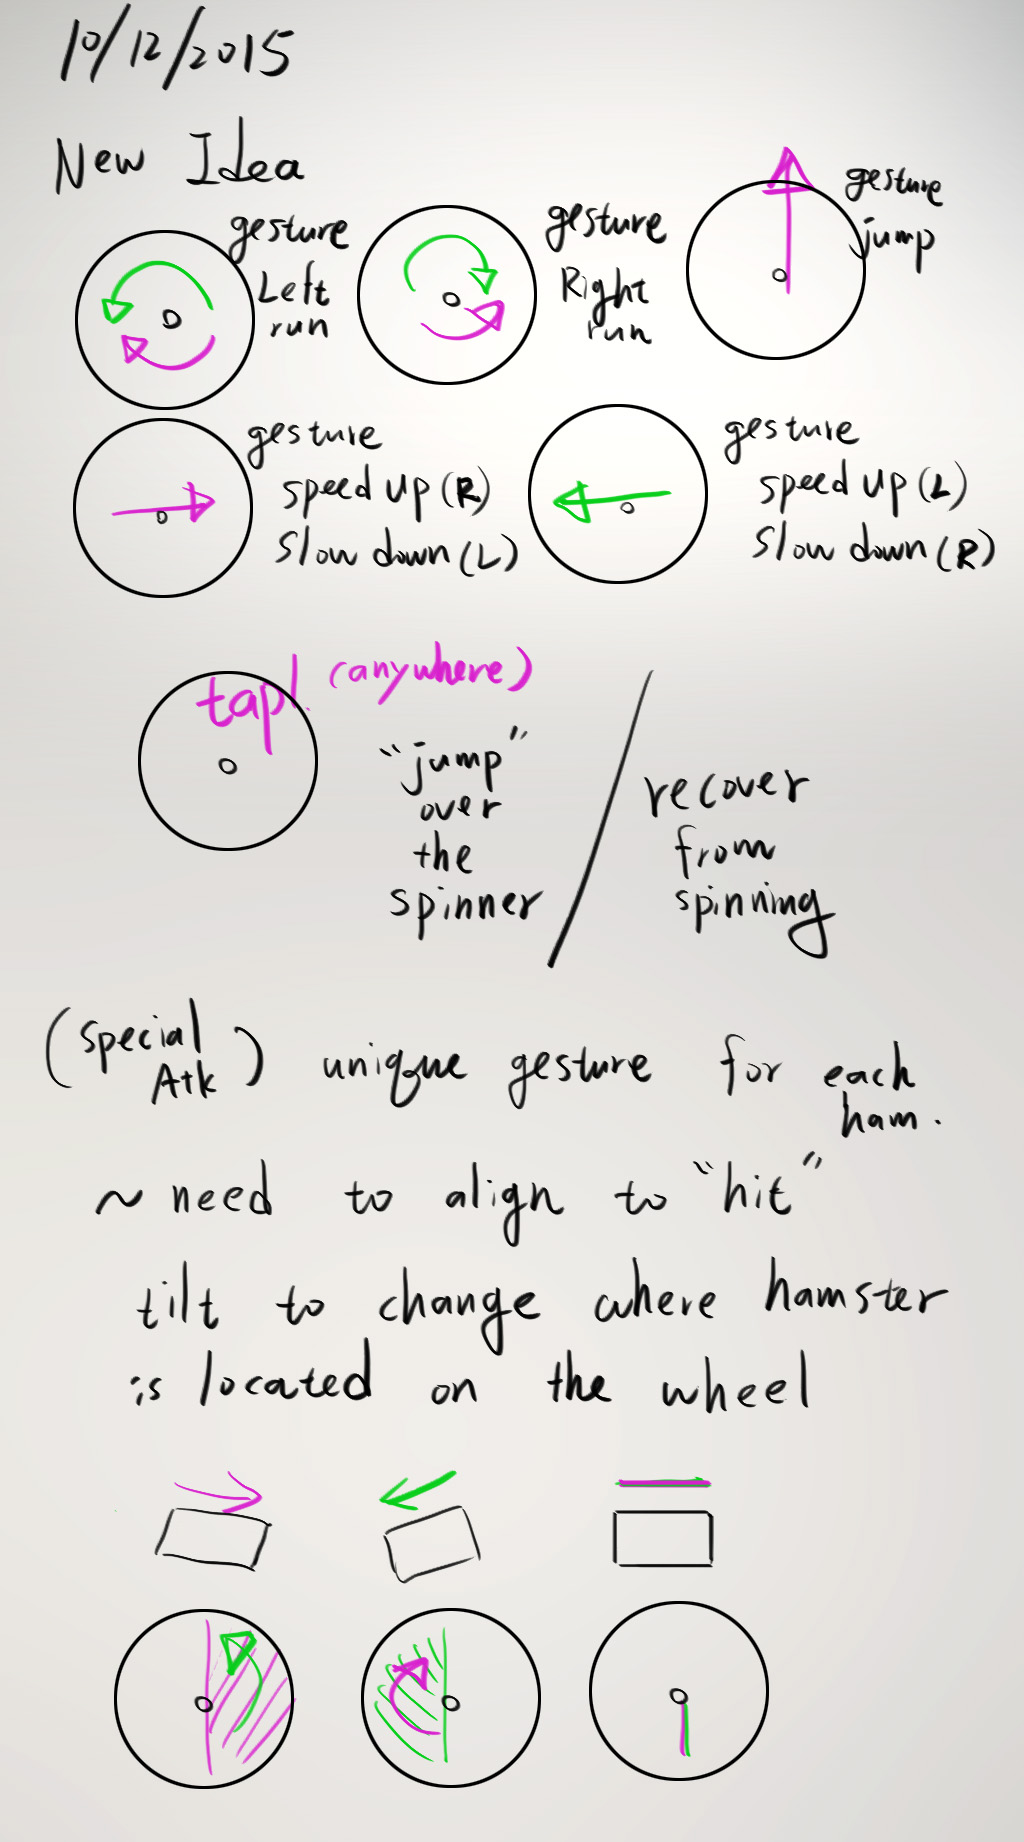 10/12/2015
New Idea
gesture
Left
run
gesture
Right
run
gesture
jump
gesture
speed up (R)
slow down (L)
gesture
speed up (L)
slow down (R)
tap! (anywhere)
"jump"
over
the
spinner
recover
from
spinning
(special
Atk)
unique gesture for each
ham.
~ need to align to "hit"
tilt to change where hamster
is located on the wheel